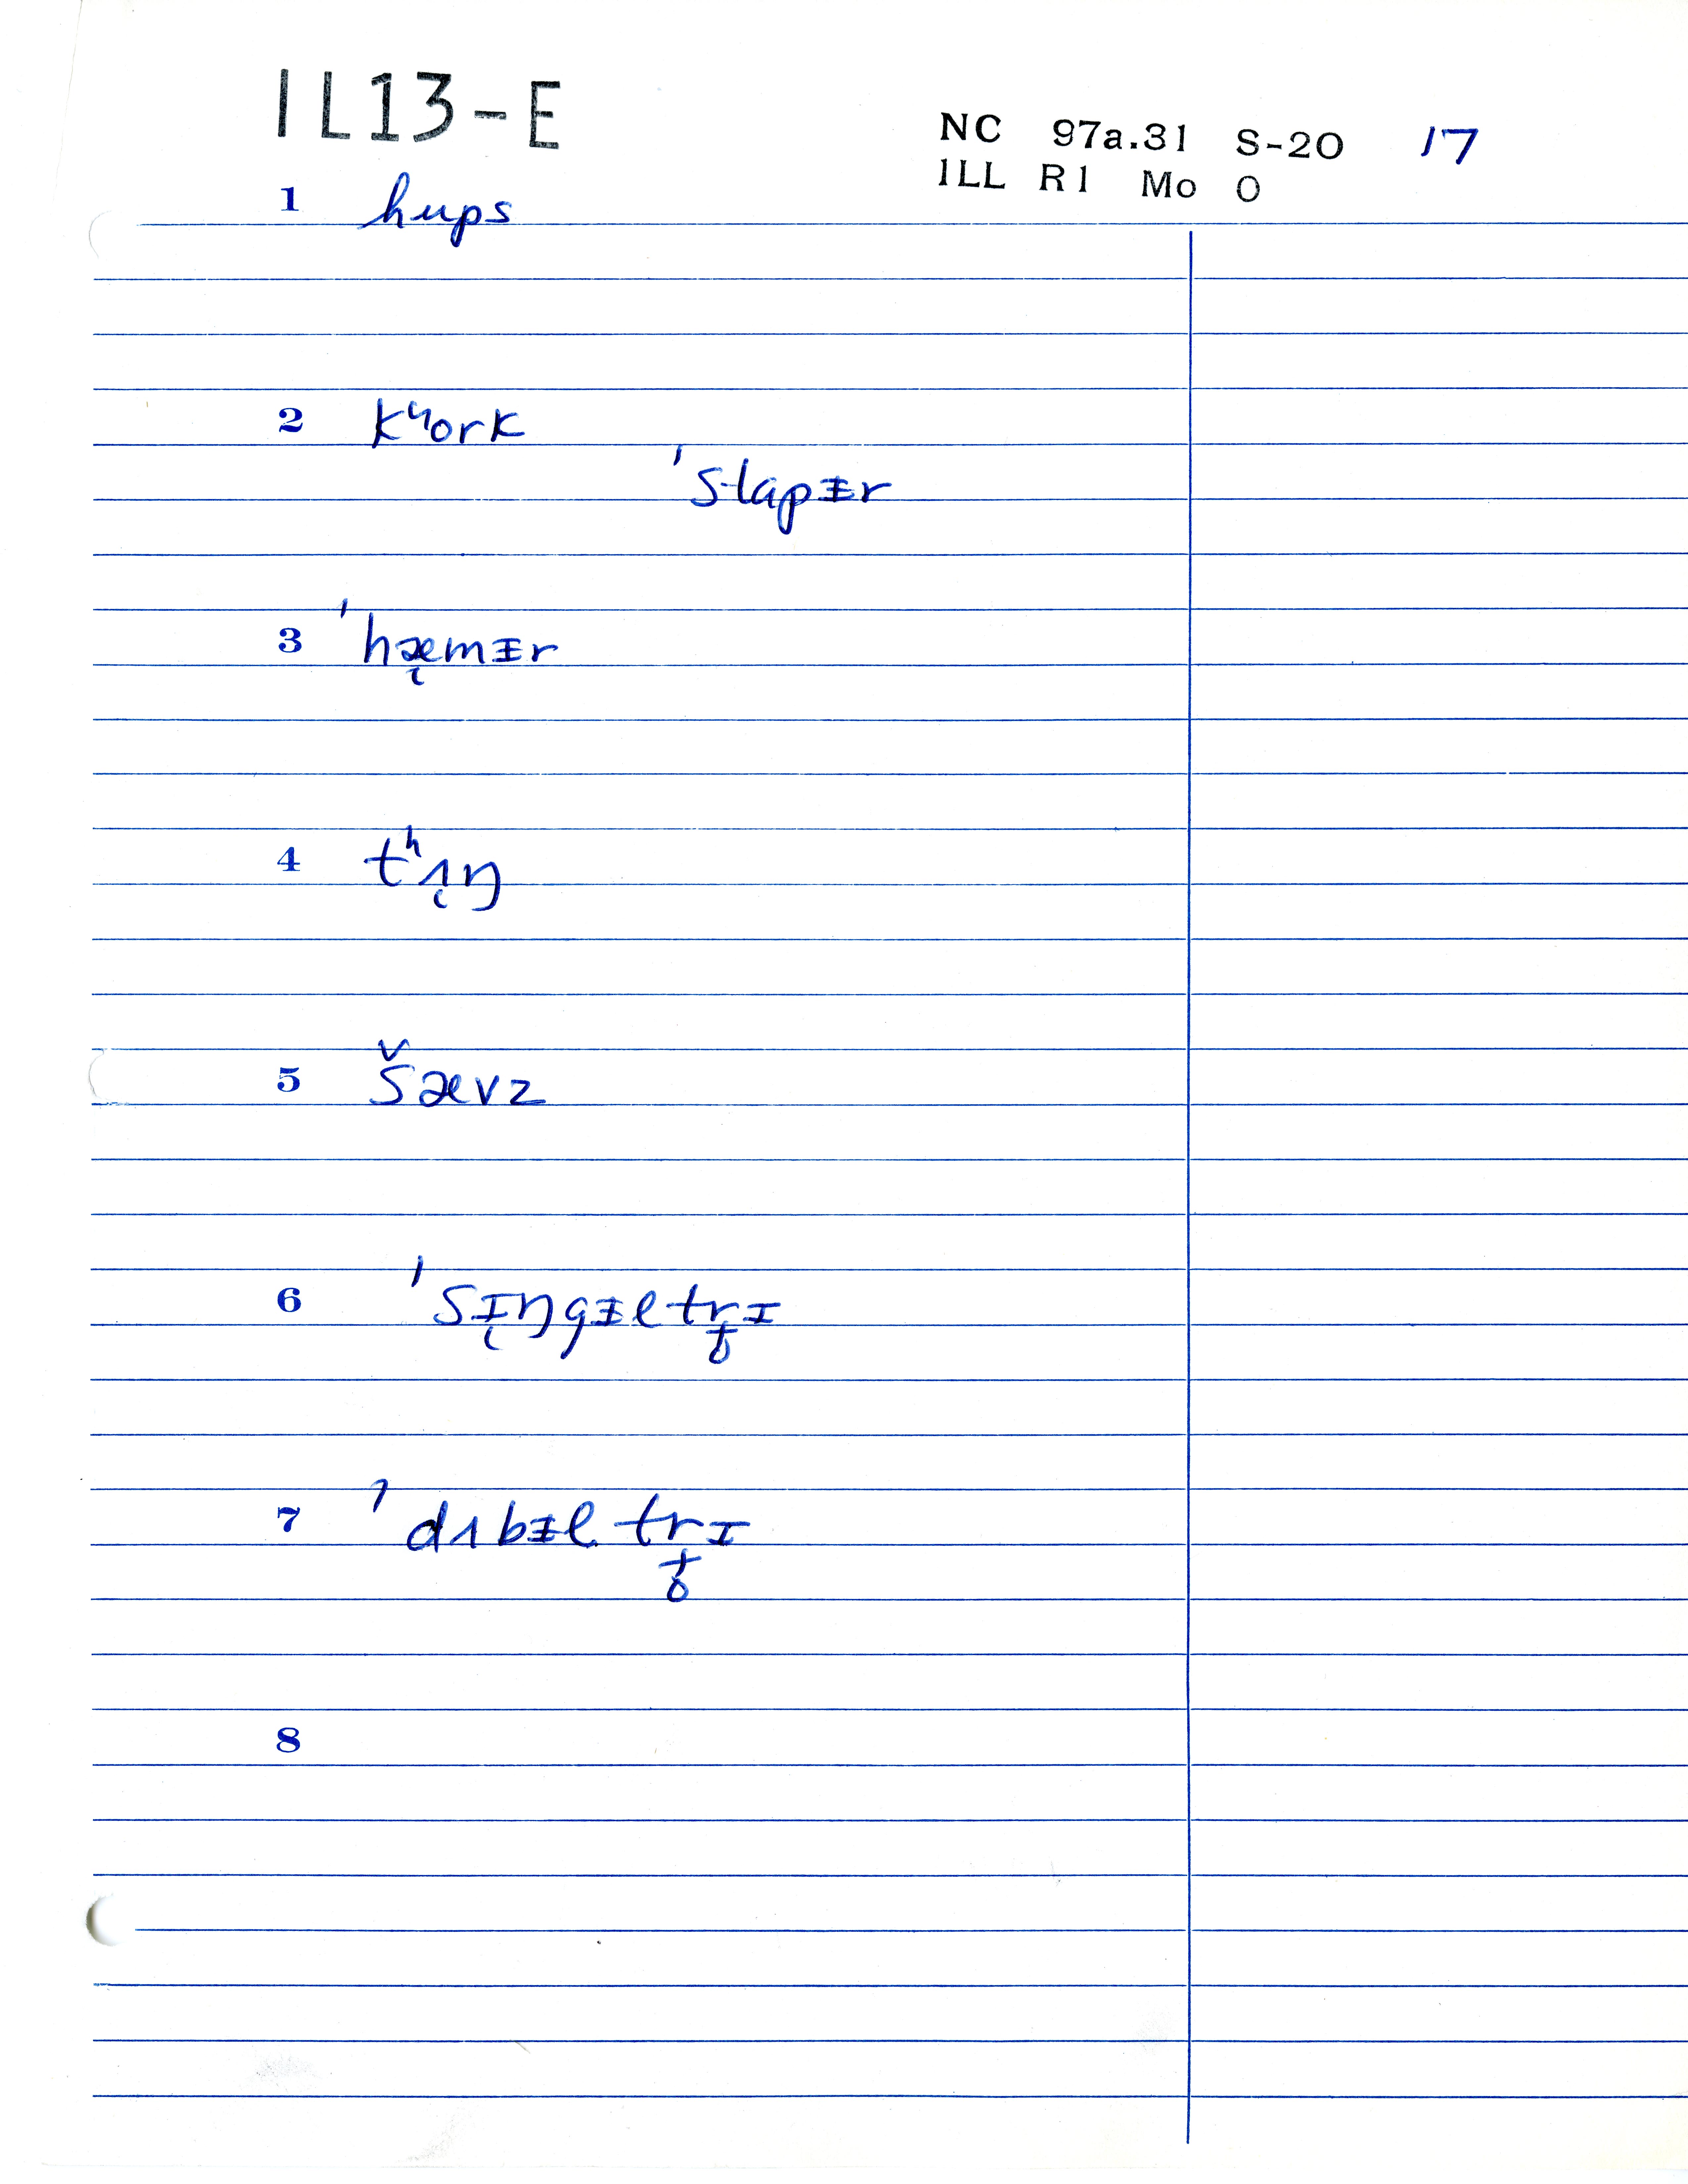 IL13-E
NC 97a.31 S-20 17
ILL R1 Mo O
1 hups
2 kʰork
ˈstapᵻr
3 ˈhæ̨mᵻr
4 tʰʌ̨ŋ
5 šævz
6 ˈsɪ̨ŋgᵻltr̥ɪ
7 ˈdʌbᵻl tr̥ɪ
8